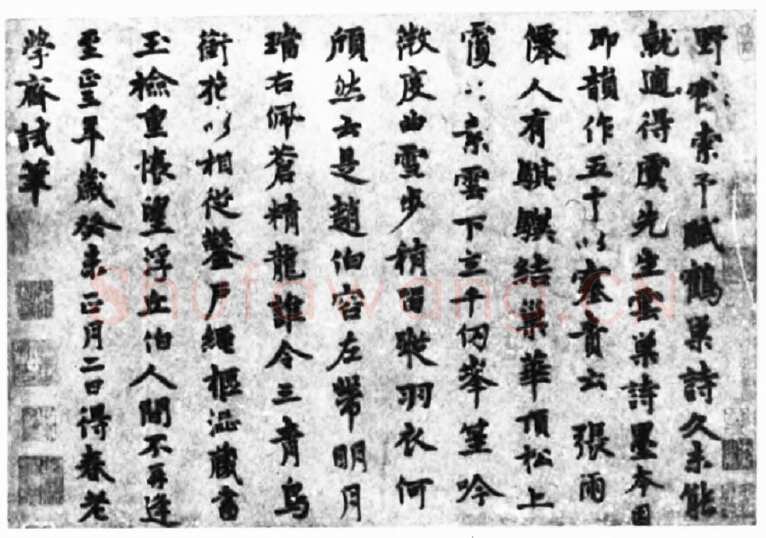 野賓索予賦鶴巢詩久未能
就適得虞先生雲巢詩墨本因
即韻作五十以塞責云張雨
僊人有騏驥結巢華頂松上
雲下立千仞峯笙吟
澂度曲雪步稍留蹤羽衣何
頎然云是趙伯容左帶明月
璫右佩蒼精龍謂令三青鳥
銜花以相從鑿戶繩樞澁藏書
玉檢重悵望浮丘伯人間不再逢
至正三年歲癸未正月二日得春老
學齋試筆
Shufawang.cn